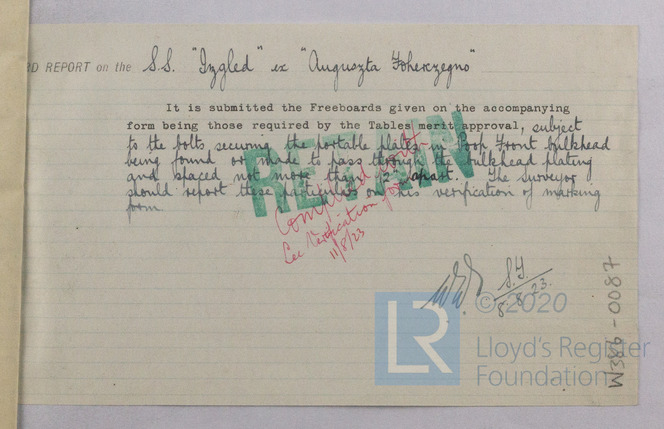 RD REPORT on the S.S. "Izgled" ex "Auguszta Foherczegno"
It is submitted the Freeboards given on the accompanying
form being those required by the Tables merit approval, subject
to the bolts securing the portable plates in Poop Front bulkhead
being found or made to pass through the bulkhead plating
and spaced not more than 12" apart. The Surveyor
should report these particulars on his verification of marking
form.
RETAIN
Complied with
See Verification form
11/8/23
S.J.
8.8.23.
W386-0087
© 2020
LR
Lloyd's Register
Foundation